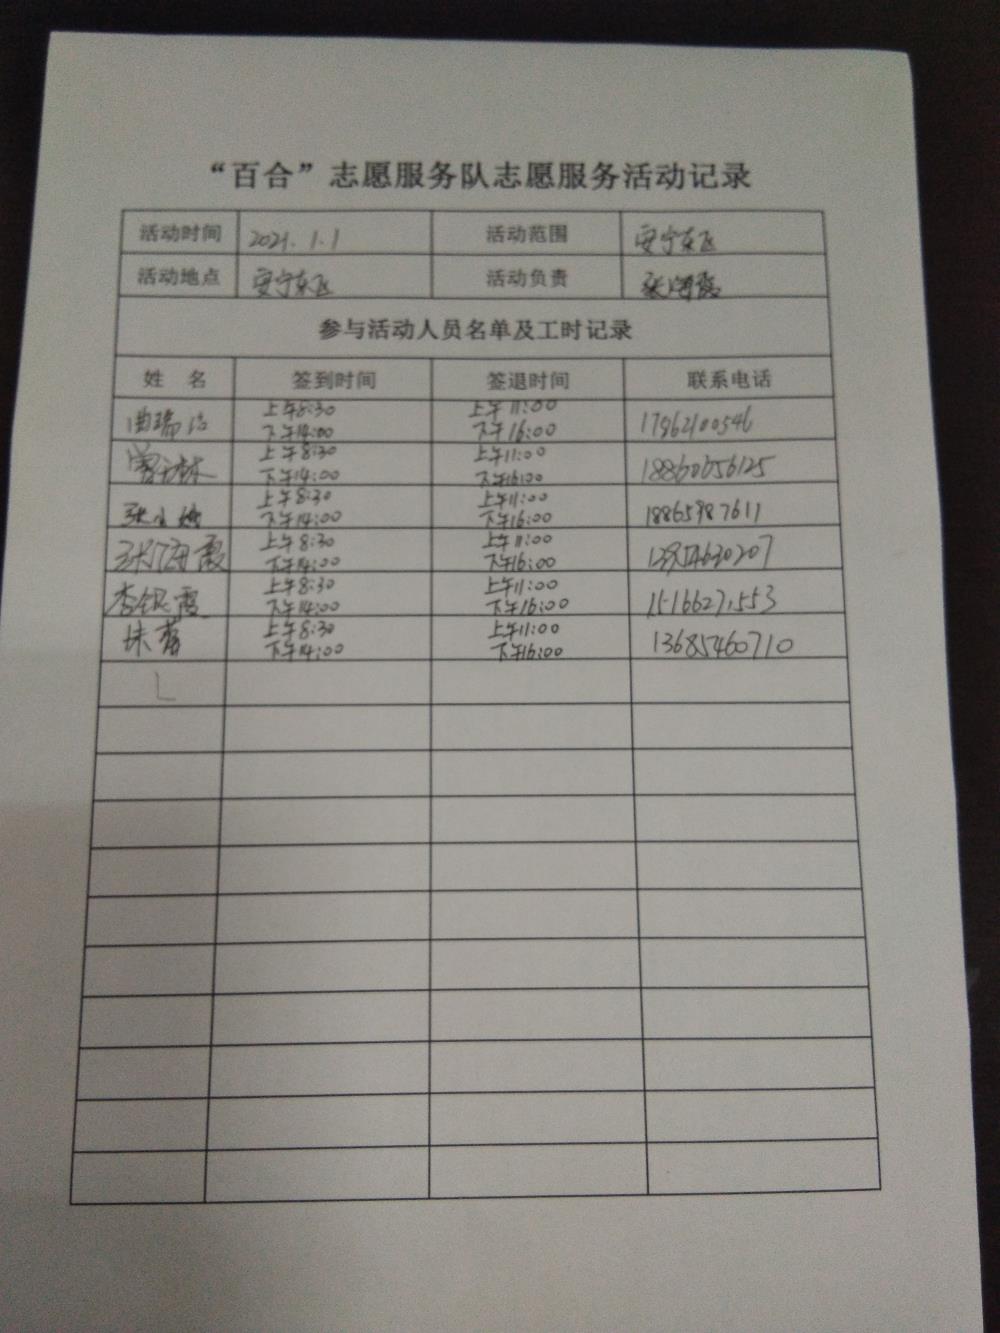 “百合”志愿服务队志愿服务活动记录
活动时间 2021.1.1 活动范围 安宁东飞
活动地点 安宁东飞 活动负责 张海霞
参与活动人员名单及工时记录
姓 名 签到时间 签退时间 联系电话
曲瑞 上午8:30 上午11:00 17962100546
下午14:00 下午16:00
上午8:30 上午11:00 18860656125
下午14:00 下午16:00
张小 上午8:30 上午11:00 18865987611
下午14:00 下午16:00
张海霞 上午8:30 上午11:00
下午14:00 下午16:00
李银霞 上午8:30 上午11:00 15166271553
下午14:00 下午16:00
上午8:30 上午11:00 13685460710
下午14:00 下午16:00